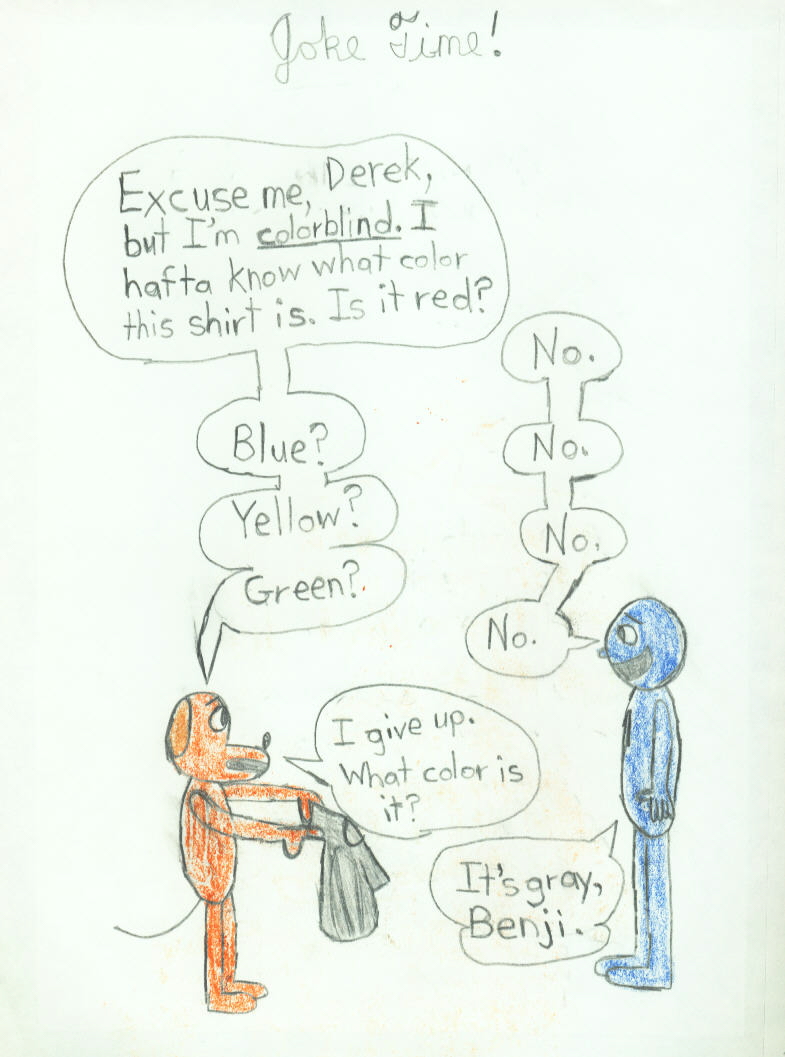 Joke Time!
Excuse me, Derek,
but I'm colorblind. I
hafta know what color
this shirt is. Is it red?
No.
Blue?
No.
Yellow?
No.
Green?
No.
I give up.
What color is
it?
It's gray,
Benji.